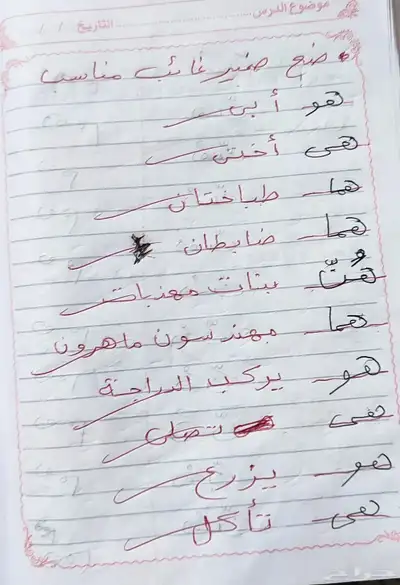 موضوع الدرس ........ التاريخ / /
ضع ضمير غائب مناسب
هو أبى
هى أختى
هما طباختان
هما ضابطان
هُنّ بنات مهذبات
هما مهندسون ماهرون
هو يركب الدراجة
هى تصلى
هو يزرع
هى تأكل